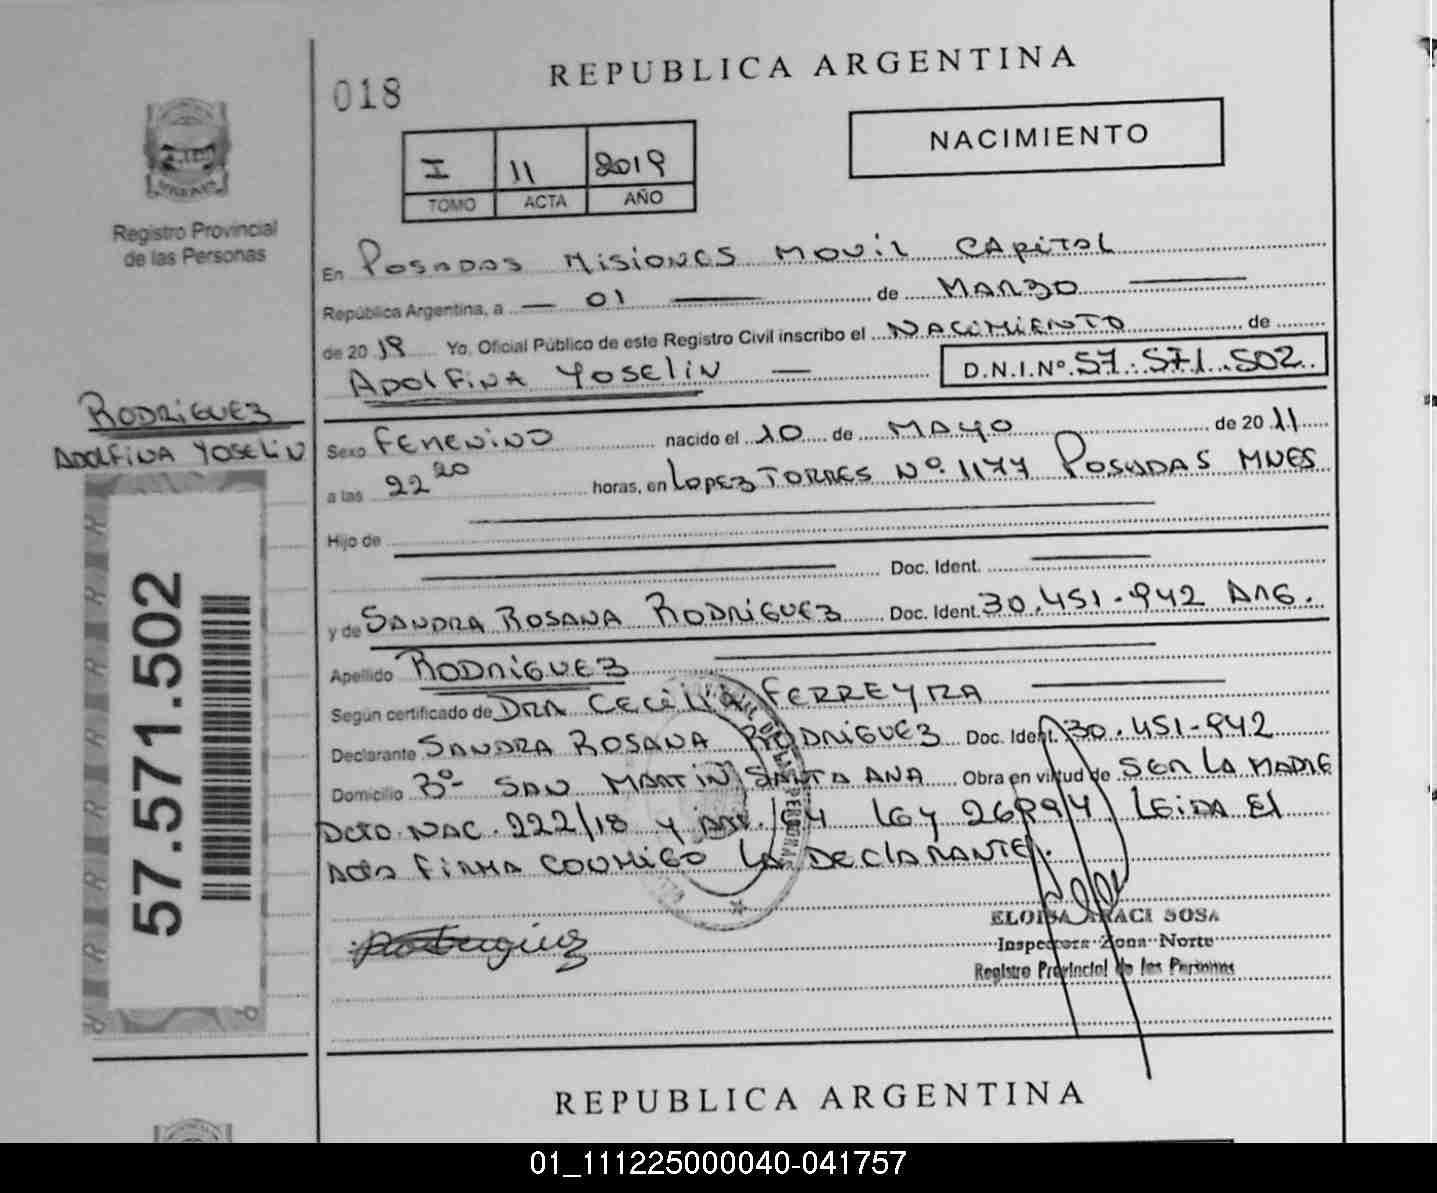 018
REPUBLICA ARGENTINA
NACIMIENTO
I 11 2019
TOMO ACTA AÑO
Registro Provincial
de las Personas
En Posadas Misiones Movil Capital
República Argentina, a — 01 — de Marzo —
de 2019 Yo, Oficial Público de este Registro Civil inscribo el Nacimiento de
Adolfina Yoselin — D.N.I.Nº 57.571.502
Rodriguez
Adolfina Yoselin
Sexo Femenino nacido el 10 de Mayo de 2011
a las 22 20 horas, en Lopez Torres Nº 1177 Posadas Mnes
Hijo de
Doc. Ident.
y de Sandra Rosana Rodriguez Doc. Ident. 30.451.942 Arg.
Apellido Rodriguez
Según certificado de Dra Cecilia Ferreyra
Declarante Sandra Rosana Rodriguez Doc. Ident. 30.451.942
Domicilio Bº San Martin Santa Ana Obra en virtud de ser la madre
Dcto. Nac. 222/18 y Art. 94 Ley 26994 Leida el
acta firma conmigo la declarante.
57.571.502
Rodriguez
ELOISA ARACI SOSA
Inspectora Zona Norte
Registro Provincial de las Personas
REPUBLICA ARGENTINA
01_111225000040-041757